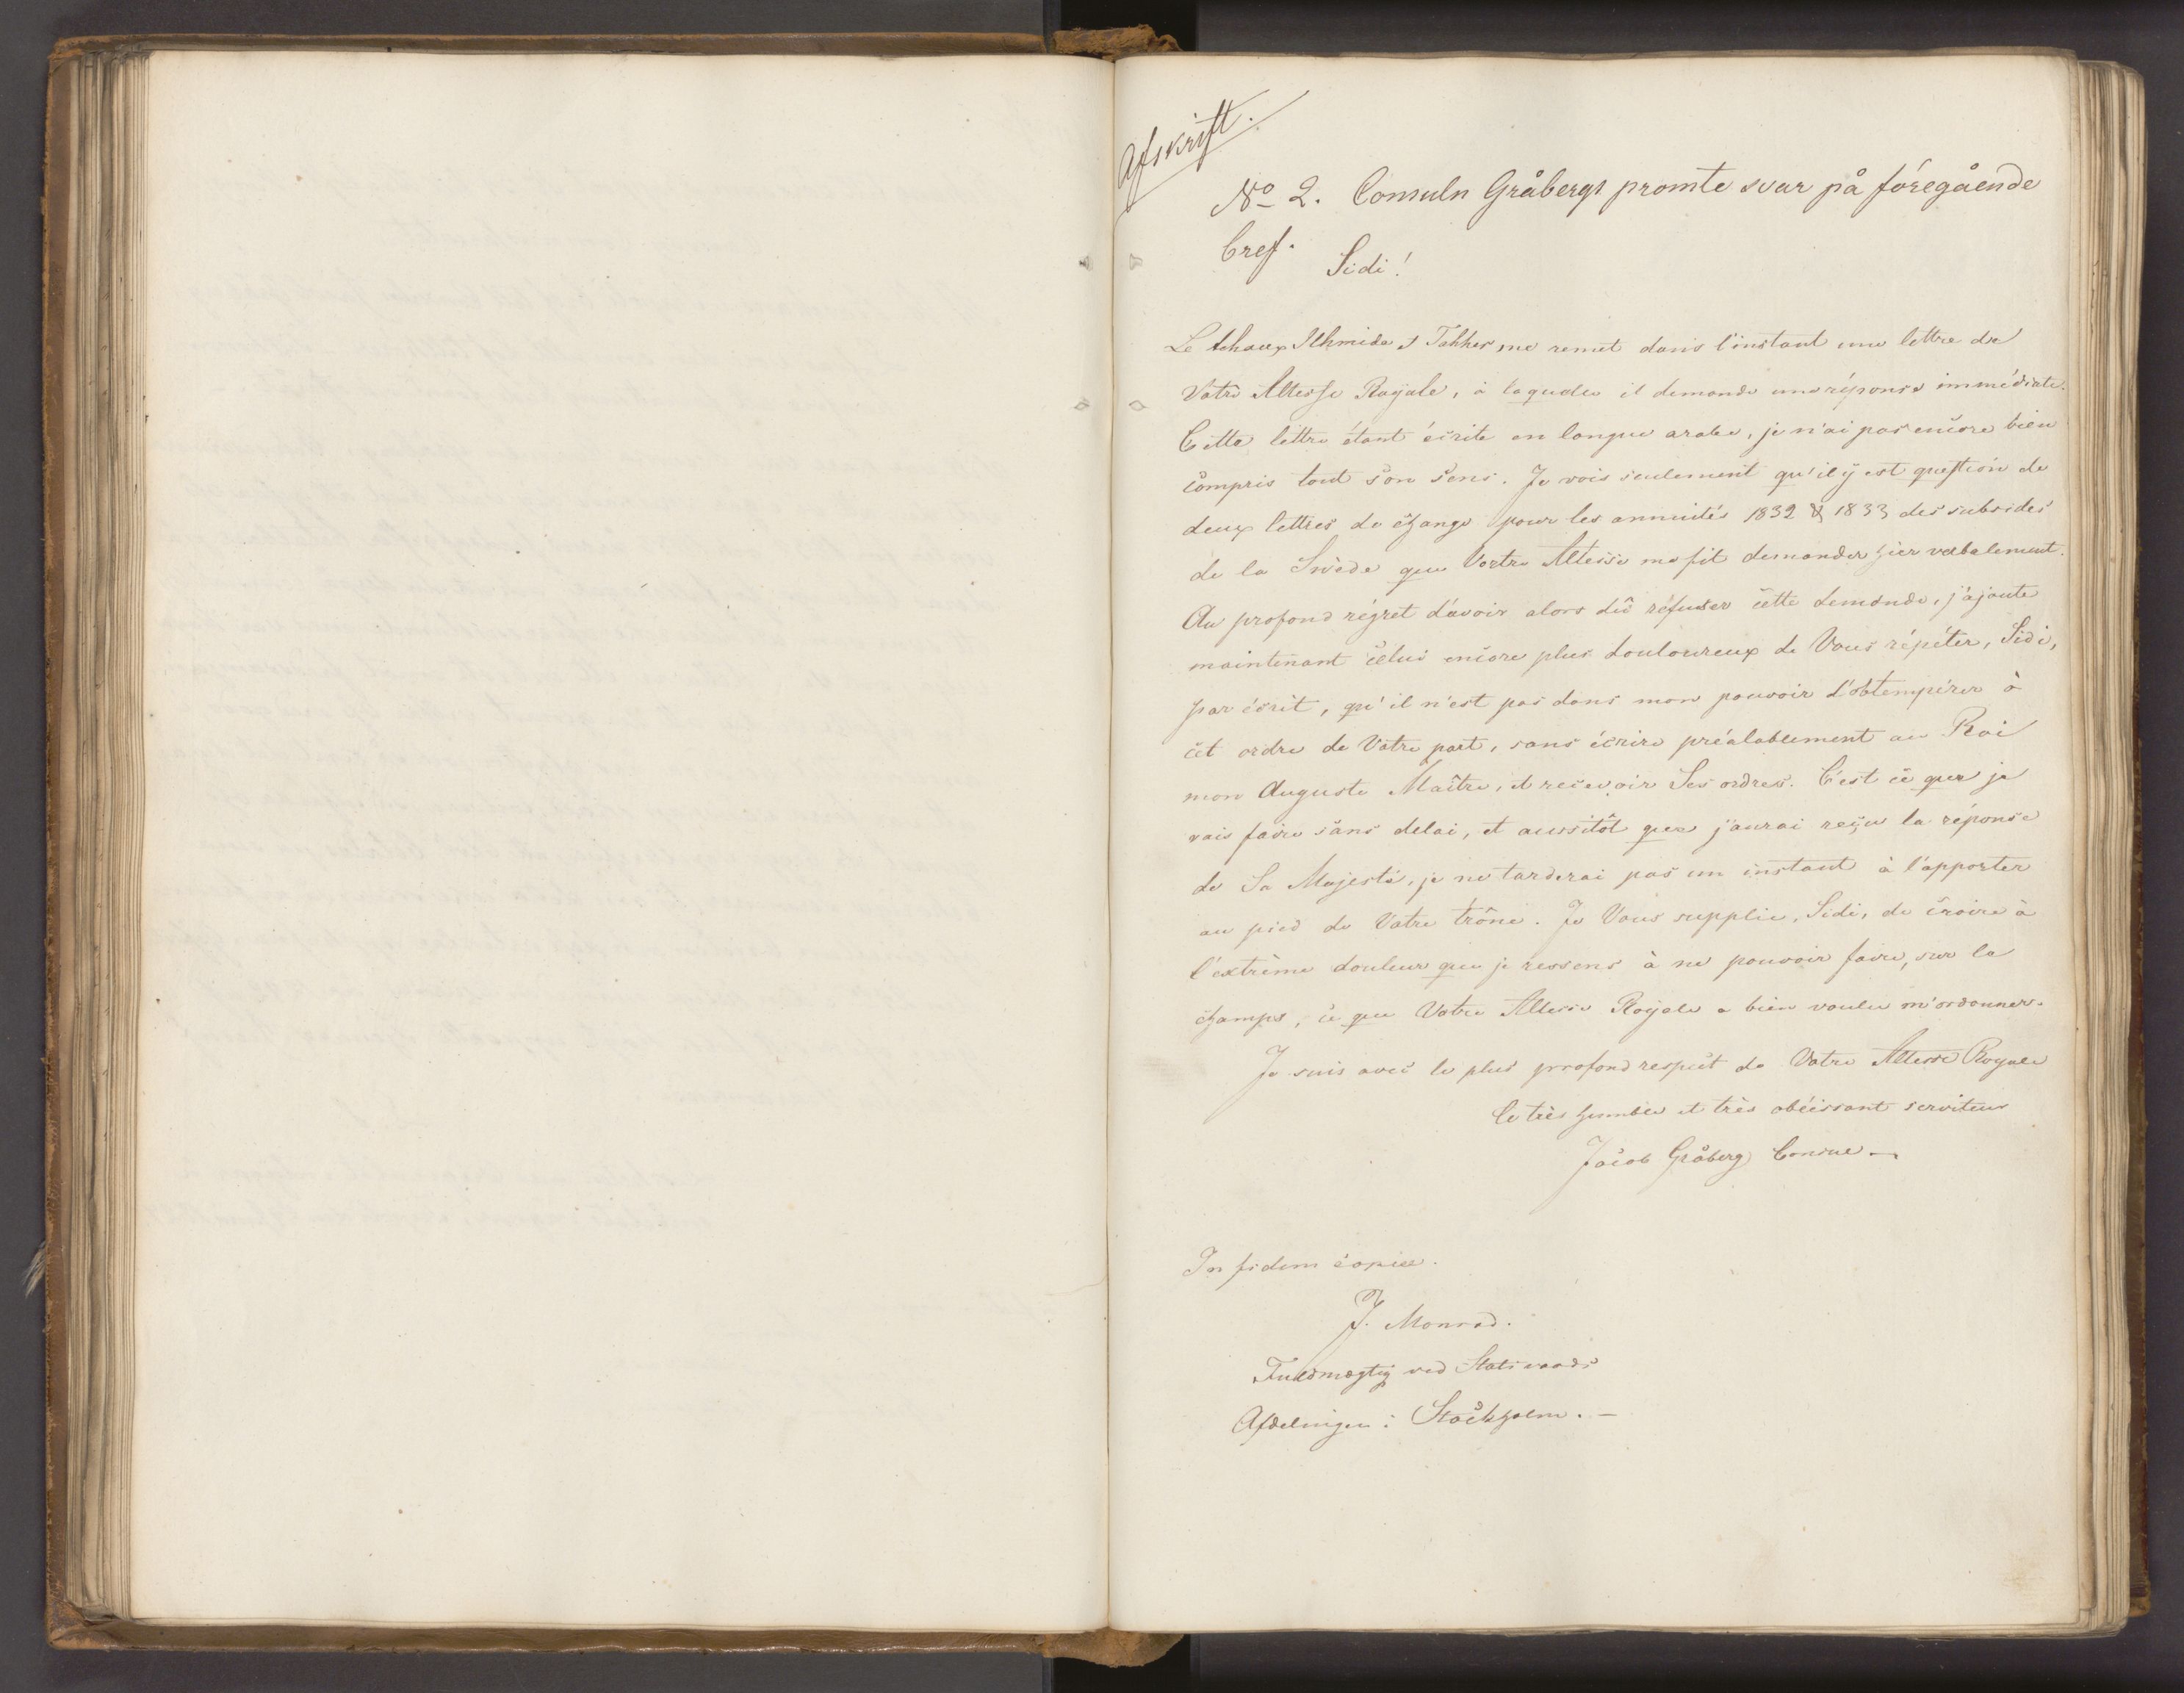 Afskrift.
No 2. Consuln Gråbergs promte svar på föregående
bref.
Sidi!
Le tchaux Ahmida et Tahher me remet dans l'instant une lettre de
Votre Altesse Royale, à laquelle il demande une réponse immédiate.
Cette lettre étant écrite en langue arabe, je n'ai pas encore bien
compris tout son sens. Je vois seulement qu'il y est question de
deux lettres de change pour les annuités 1832 & 1833 des subsides
de la Suède que Vortre Altesse me fit demander hier verbalement.
Au profond régret d'avoir alors dû réfuser cette demande, j'ajoute
maintenant celui encore plus douloureux de Vous répéter, Sidi,
par écrit, qu'il n'est pas dans mon pouvoir d'obtempérer à
cet ordre de Votre part, sans écrire préalablement au Roi
mon Auguste Maître, et recevoir Ses ordres. C'est ce que je
vais faire sans delai, et aussitôt que j'aurai reçu la réponse
de Sa Majesté, je ne tarderai pas un instant à l'apporter
au pied de Votre trône. Je Vous supplie, Sidi, de croire à
l'extrème douleur que je ressens à ne pouvoir faire, sur le
champs, ce que Votre Altesse Royale a bien voulu m'ordonner.
Je suis avec le plus profond respect de Votre Altesse Royale
le très humble et très obéissant serviteur
Jacob Gråberg Consul.—
In fidem copiæ.
J. Monrad.
Fuldmægtig ved Statsraads
Afdelingen i Stockholm.—